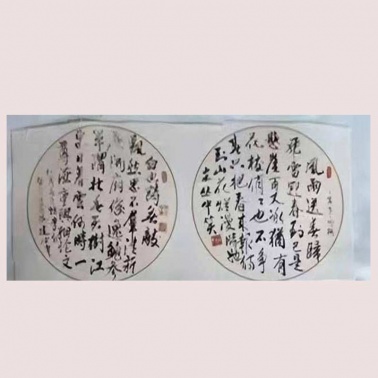 風雨送春歸
飛雪迎春到已是
懸崖百丈冰猶有
花枝俏〻也不爭
春只把春來報待到
山花爛漫時她
在丛中笑
白也詩無敵
飄然思不羣清新
庾開府俊逸鮑參
軍渭北春天樹江
東日暮雲何時一
尊酒重與細論文